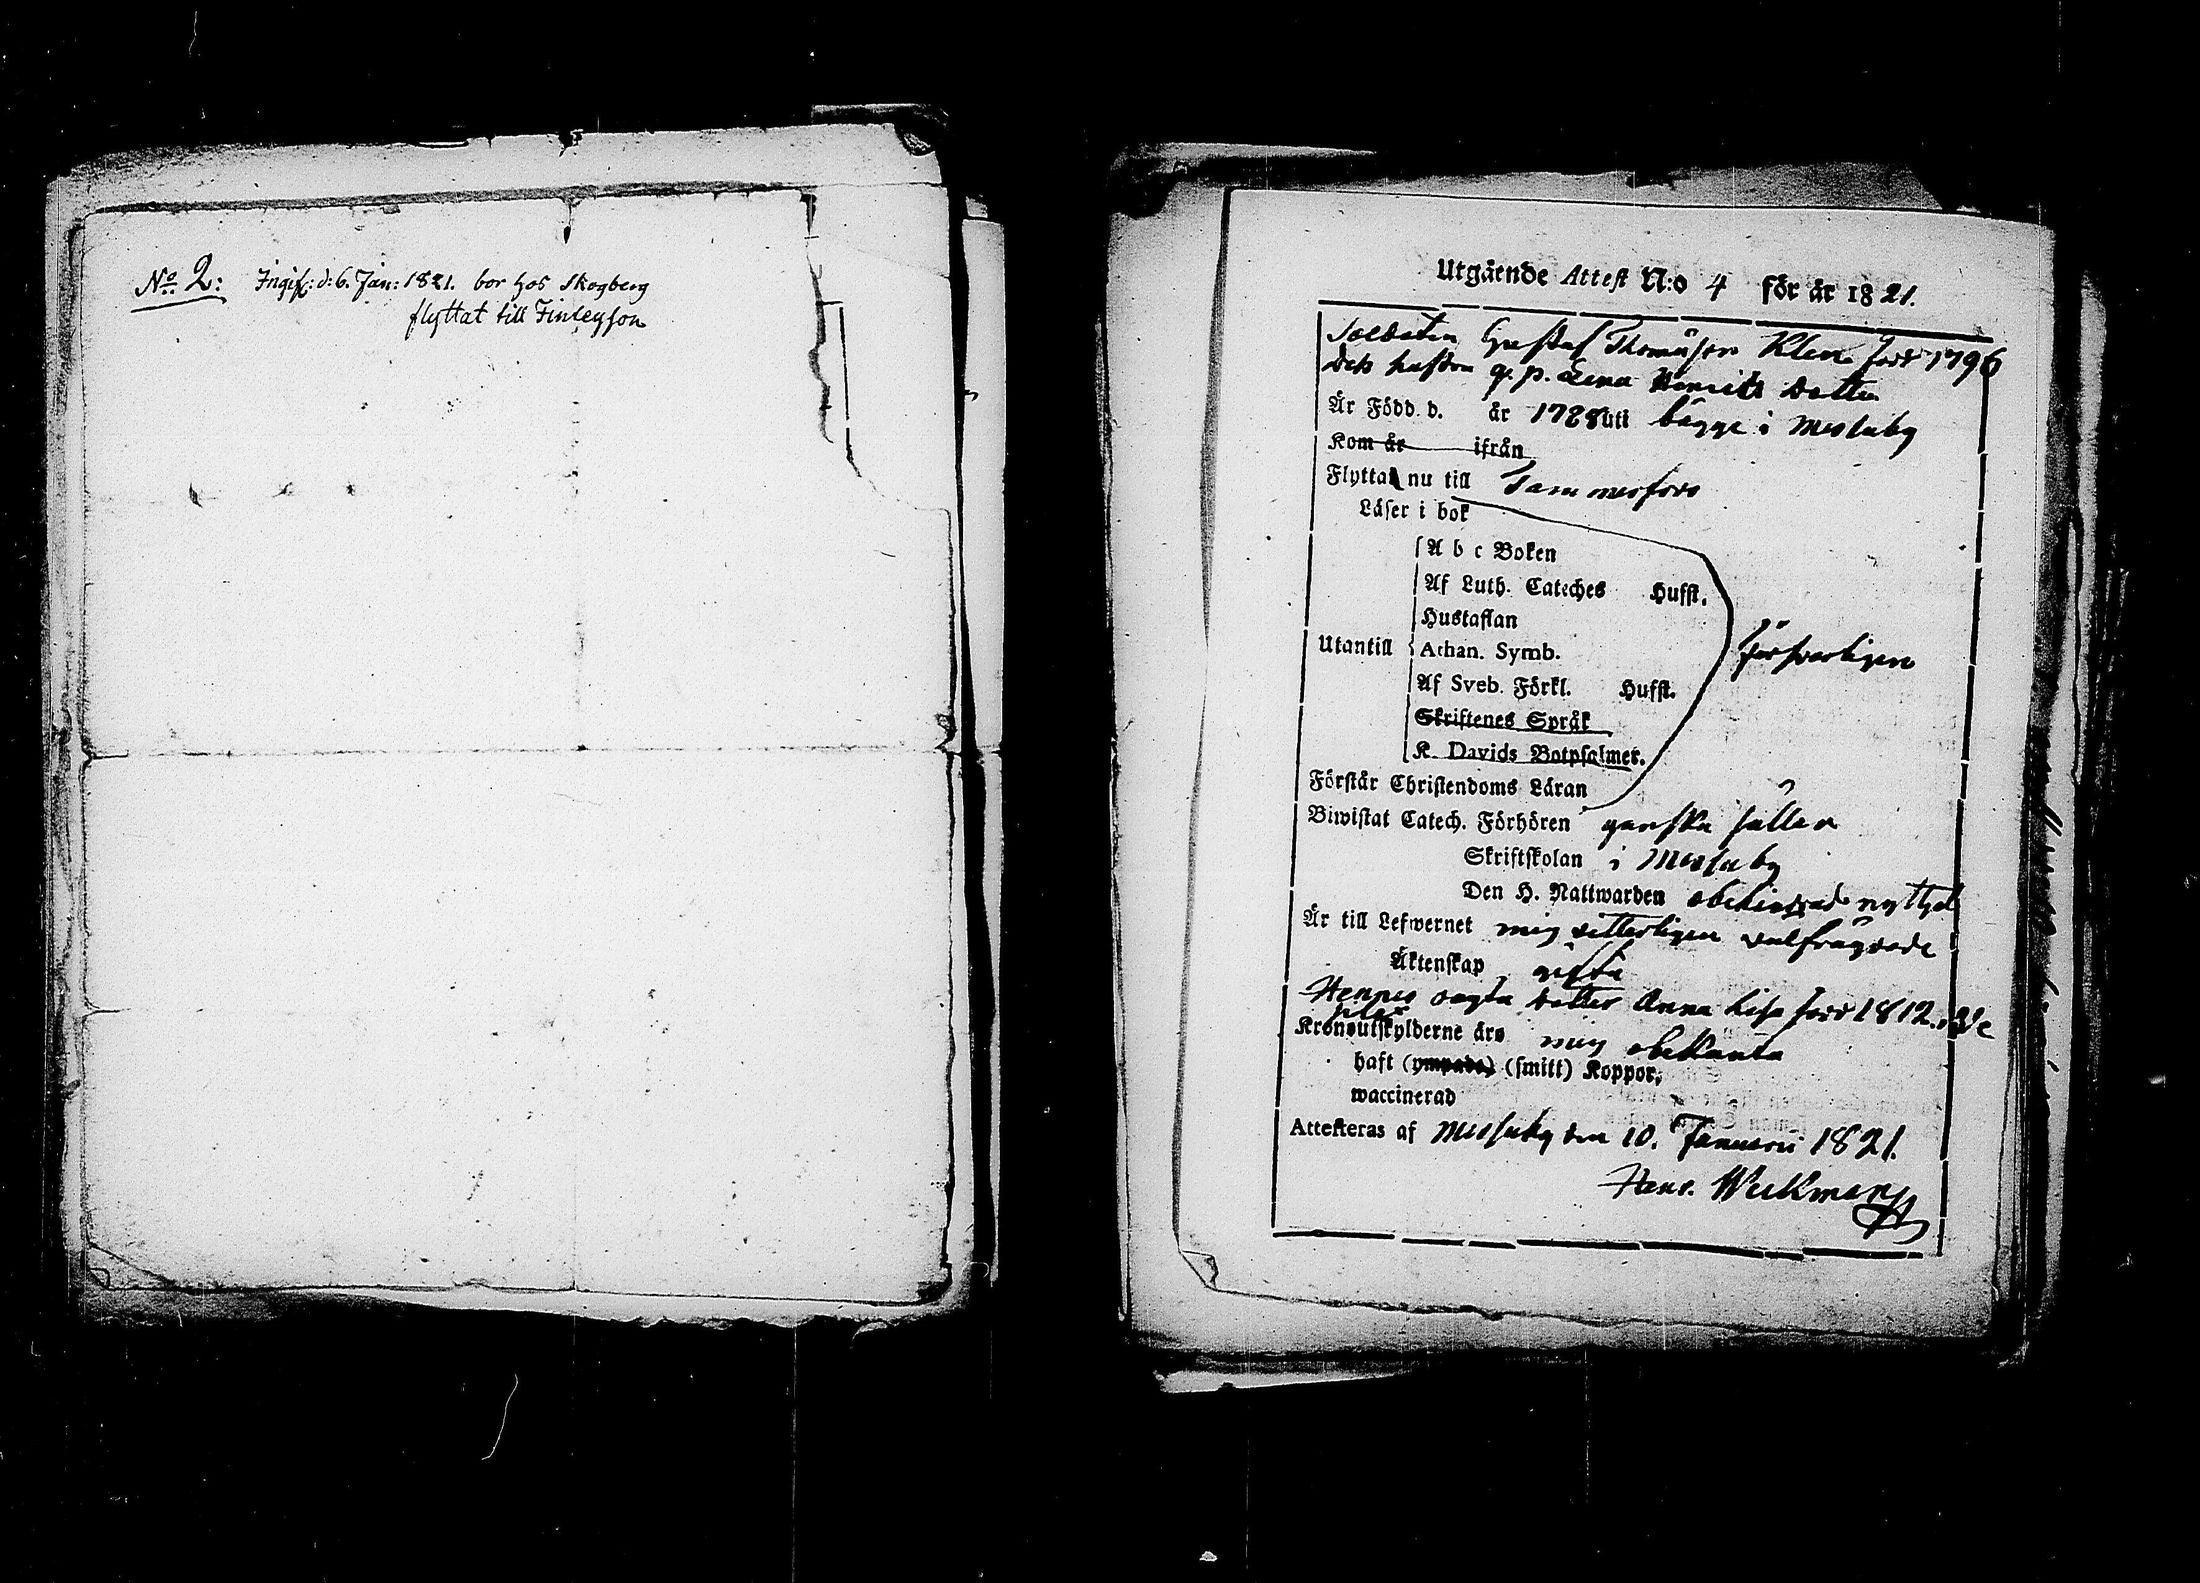 No 2: Ingif: d: 6. Jan: 1821. bor hos Skogberg
flyttat till Finleyson
Utgående Attest N:o 4 för år 1821.
Soldaten Gustaf Thomason Klen född 1796
dets hustru g. p. Lena Henrics dotter
Är Född d. år 1788 uti bägge i Messuby
Kom år ifrån
Flytta nu till Tammerfors
Läser i bok
A b c Boken
Af Luth. Cateches Hufst.
Hustaflan
Utantill Athan. Symb. försvarligen
Af Sveb. Förkl. Hufst.
Skriftenes Språk
K. Davids Botpsalmer.
Förstår Christendoms Läran
Biwistat Catech. Förhören ganska sällan
Skriftskolan i Messuby
Den H. Nattwarden obehindrade nyttjat
Är till Lefwernet mig vitterligen välfrägdade
Äktenskap gifta
Hennes oägta dotter Anna Lisa född 1812.
Kronoutskylderne äro mig obekanta
haft (ympade) (smitt) Koppor,
waccinerad
Attesteras af Messuby den 10. Januari 1821.
Henr. Weckman